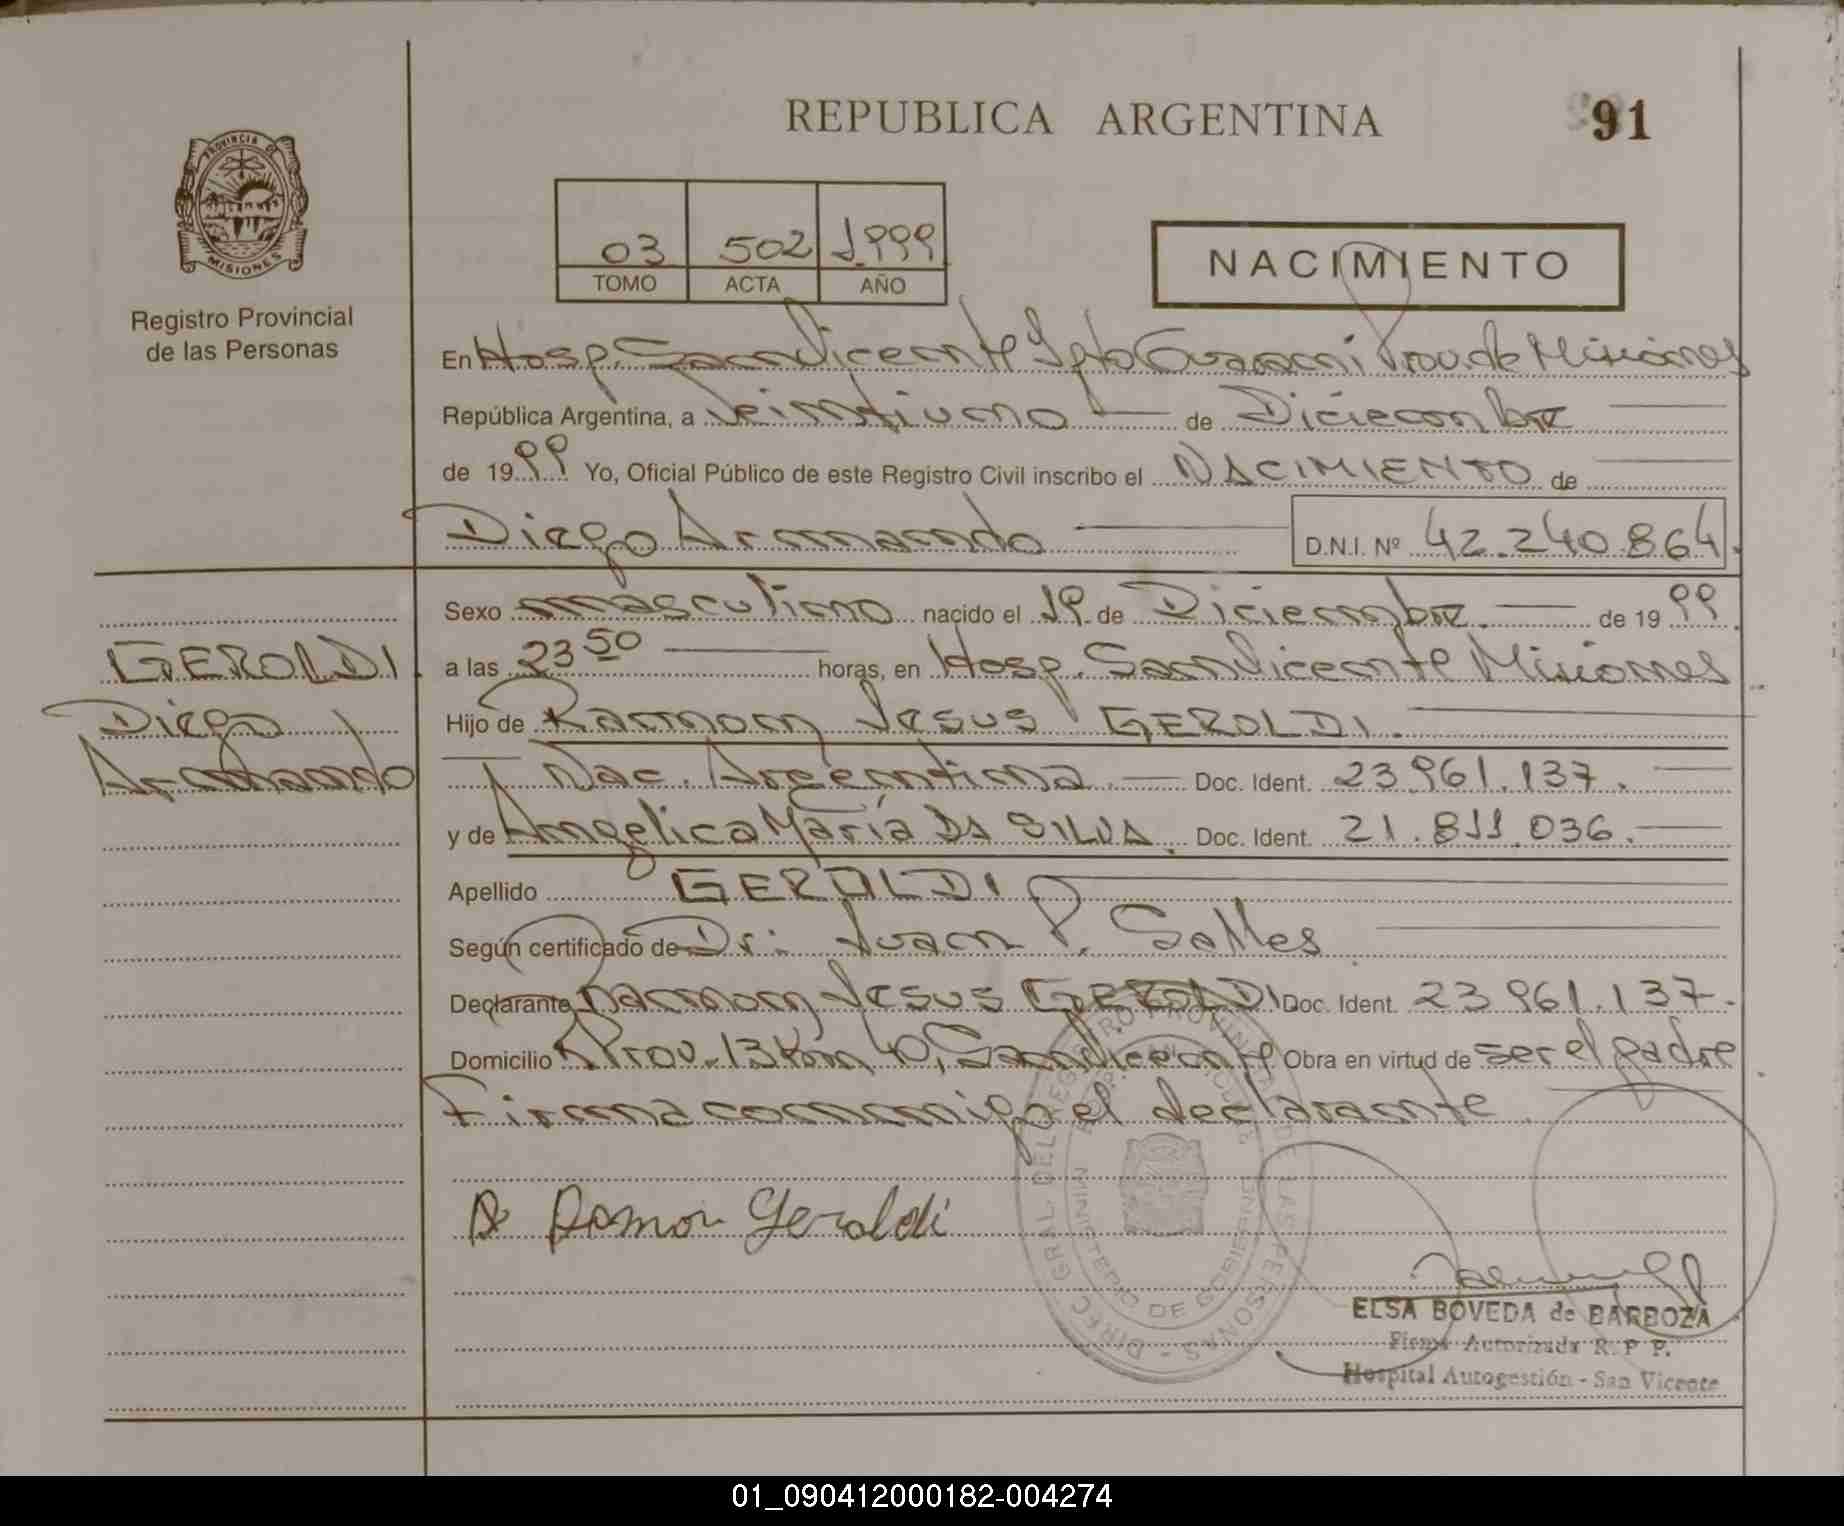 REPUBLICA ARGENTINA
91
PROVINCIA DE
MISIONES
Registro Provincial
de las Personas
03 502 1.999
TOMO ACTA AÑO
NACIMIENTO
En Hosp. San Vicente Dpto Guarani Prov. de Misiones
República Argentina, a Veintiuno de Diciembre
de 1999 Yo, Oficial Público de este Registro Civil inscribo el NACIMIENTO de
Diego Armando D.N.I. Nº 42.240.864.
GEROLDI
Diego
Armando
Sexo masculino nacido el 19 de Diciembre. de 1999.
a las 23 50 horas, en Hosp. San Vicente Misiones
Hijo de Ramon Jesus GEROLDI.
Nac. Argentina. Doc. Ident. 23.961.137.
y de Angelica María DA SILVA. Doc. Ident. 21.811.036.
Apellido GEROLDI
Según certificado de Dr: Juan P. Salles
Declarante Ramon Jesus GEROLDI Doc. Ident. 23.961.137.
Domicilio R Prov. 13 Km 40, San Vicente Obra en virtud de ser el padre
Firma conmigo el declarante.
Ramon Geroldi
DIREC. GRAL. DEL REGISTRO PROVINCIAL DE LAS PERSONAS
MINISTERIO DE GOBIERNO
ELSA BOVEDA de BARBOZA
Firma Autorizada R. P. P.
Hospital Autogestión - San Vicente
01_090412000182-004274